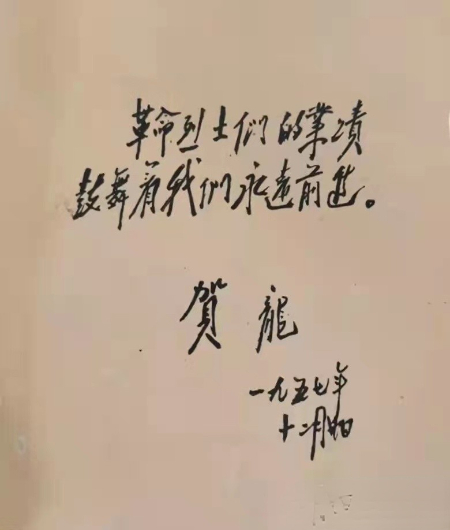 革命烈士们的業绩
鼓舞着我們永遠前進。
賀龍
一九五七年
十二月日